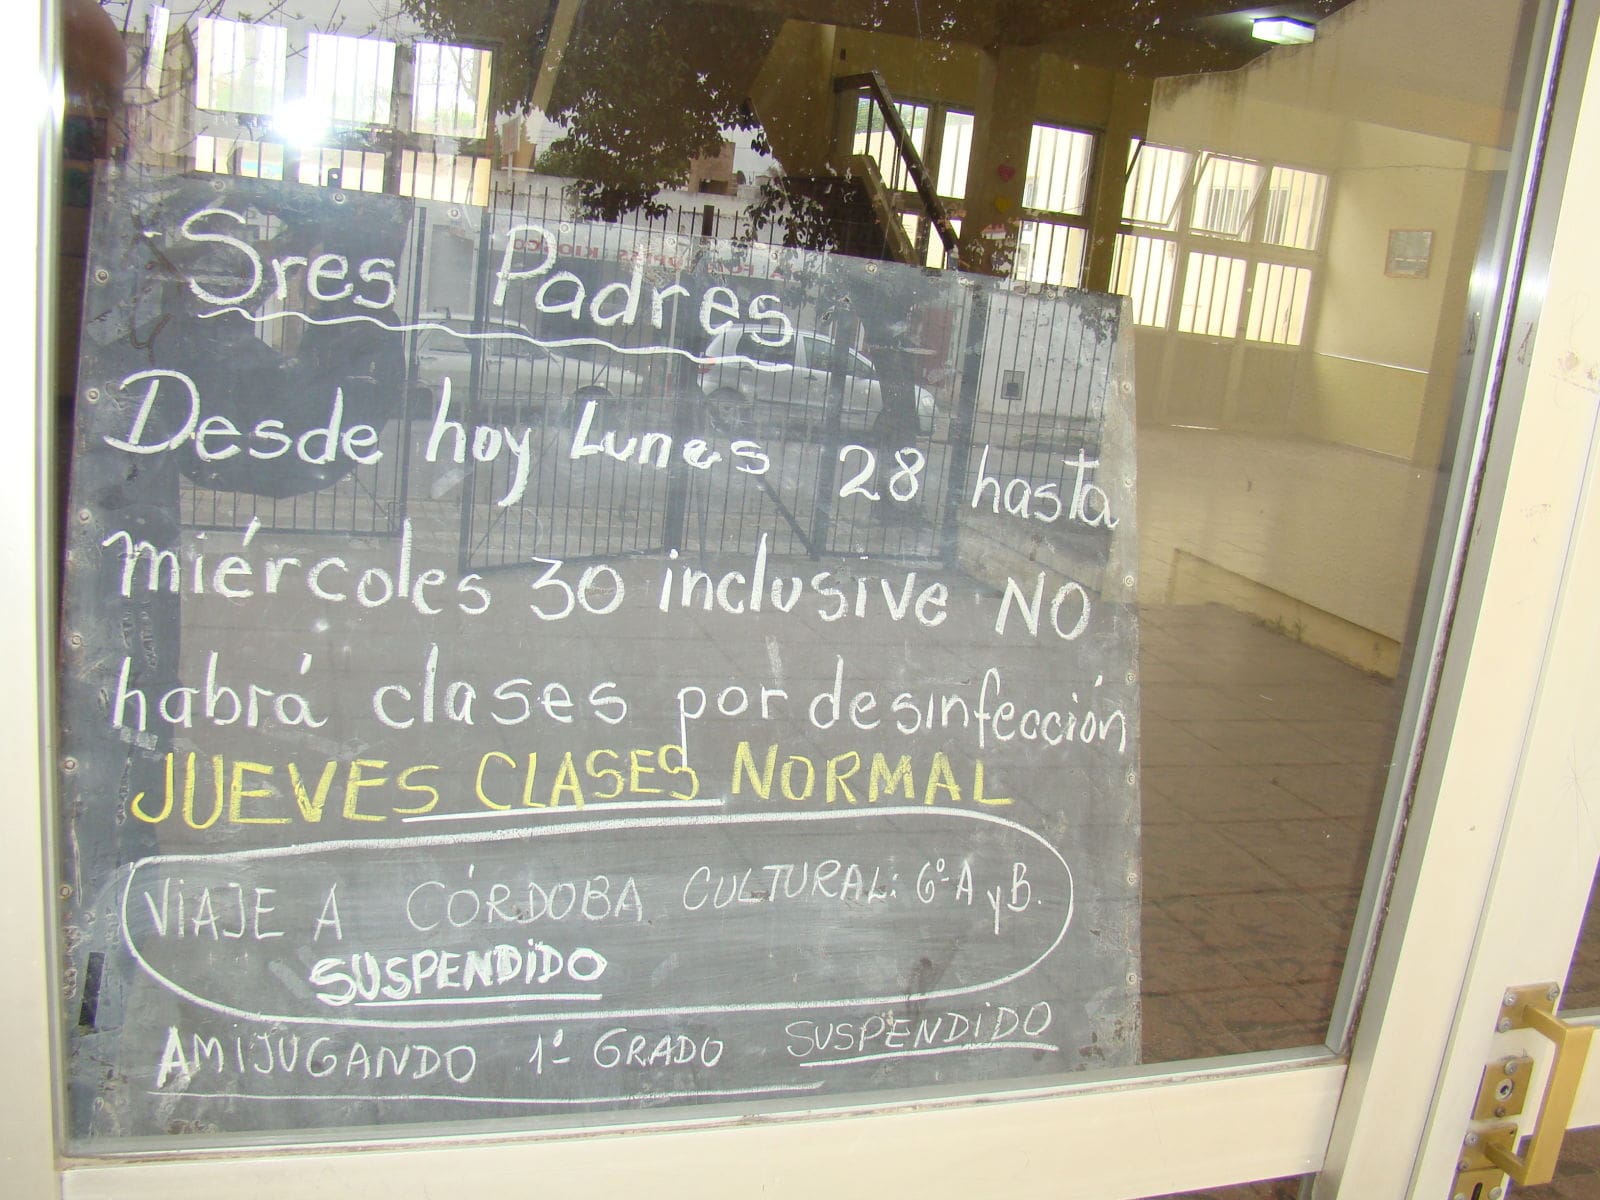 Sres Padres
Desde hoy Lunes 28 hasta
miércoles 30 inclusive NO
habrá clases por desinfección
JUEVES CLASES NORMAL
VIAJE A CÓRDOBA CULTURAL: 6º A y B.
SUSPENDIDO
AMIJUGANDO 1º GRADO SUSPENDIDO